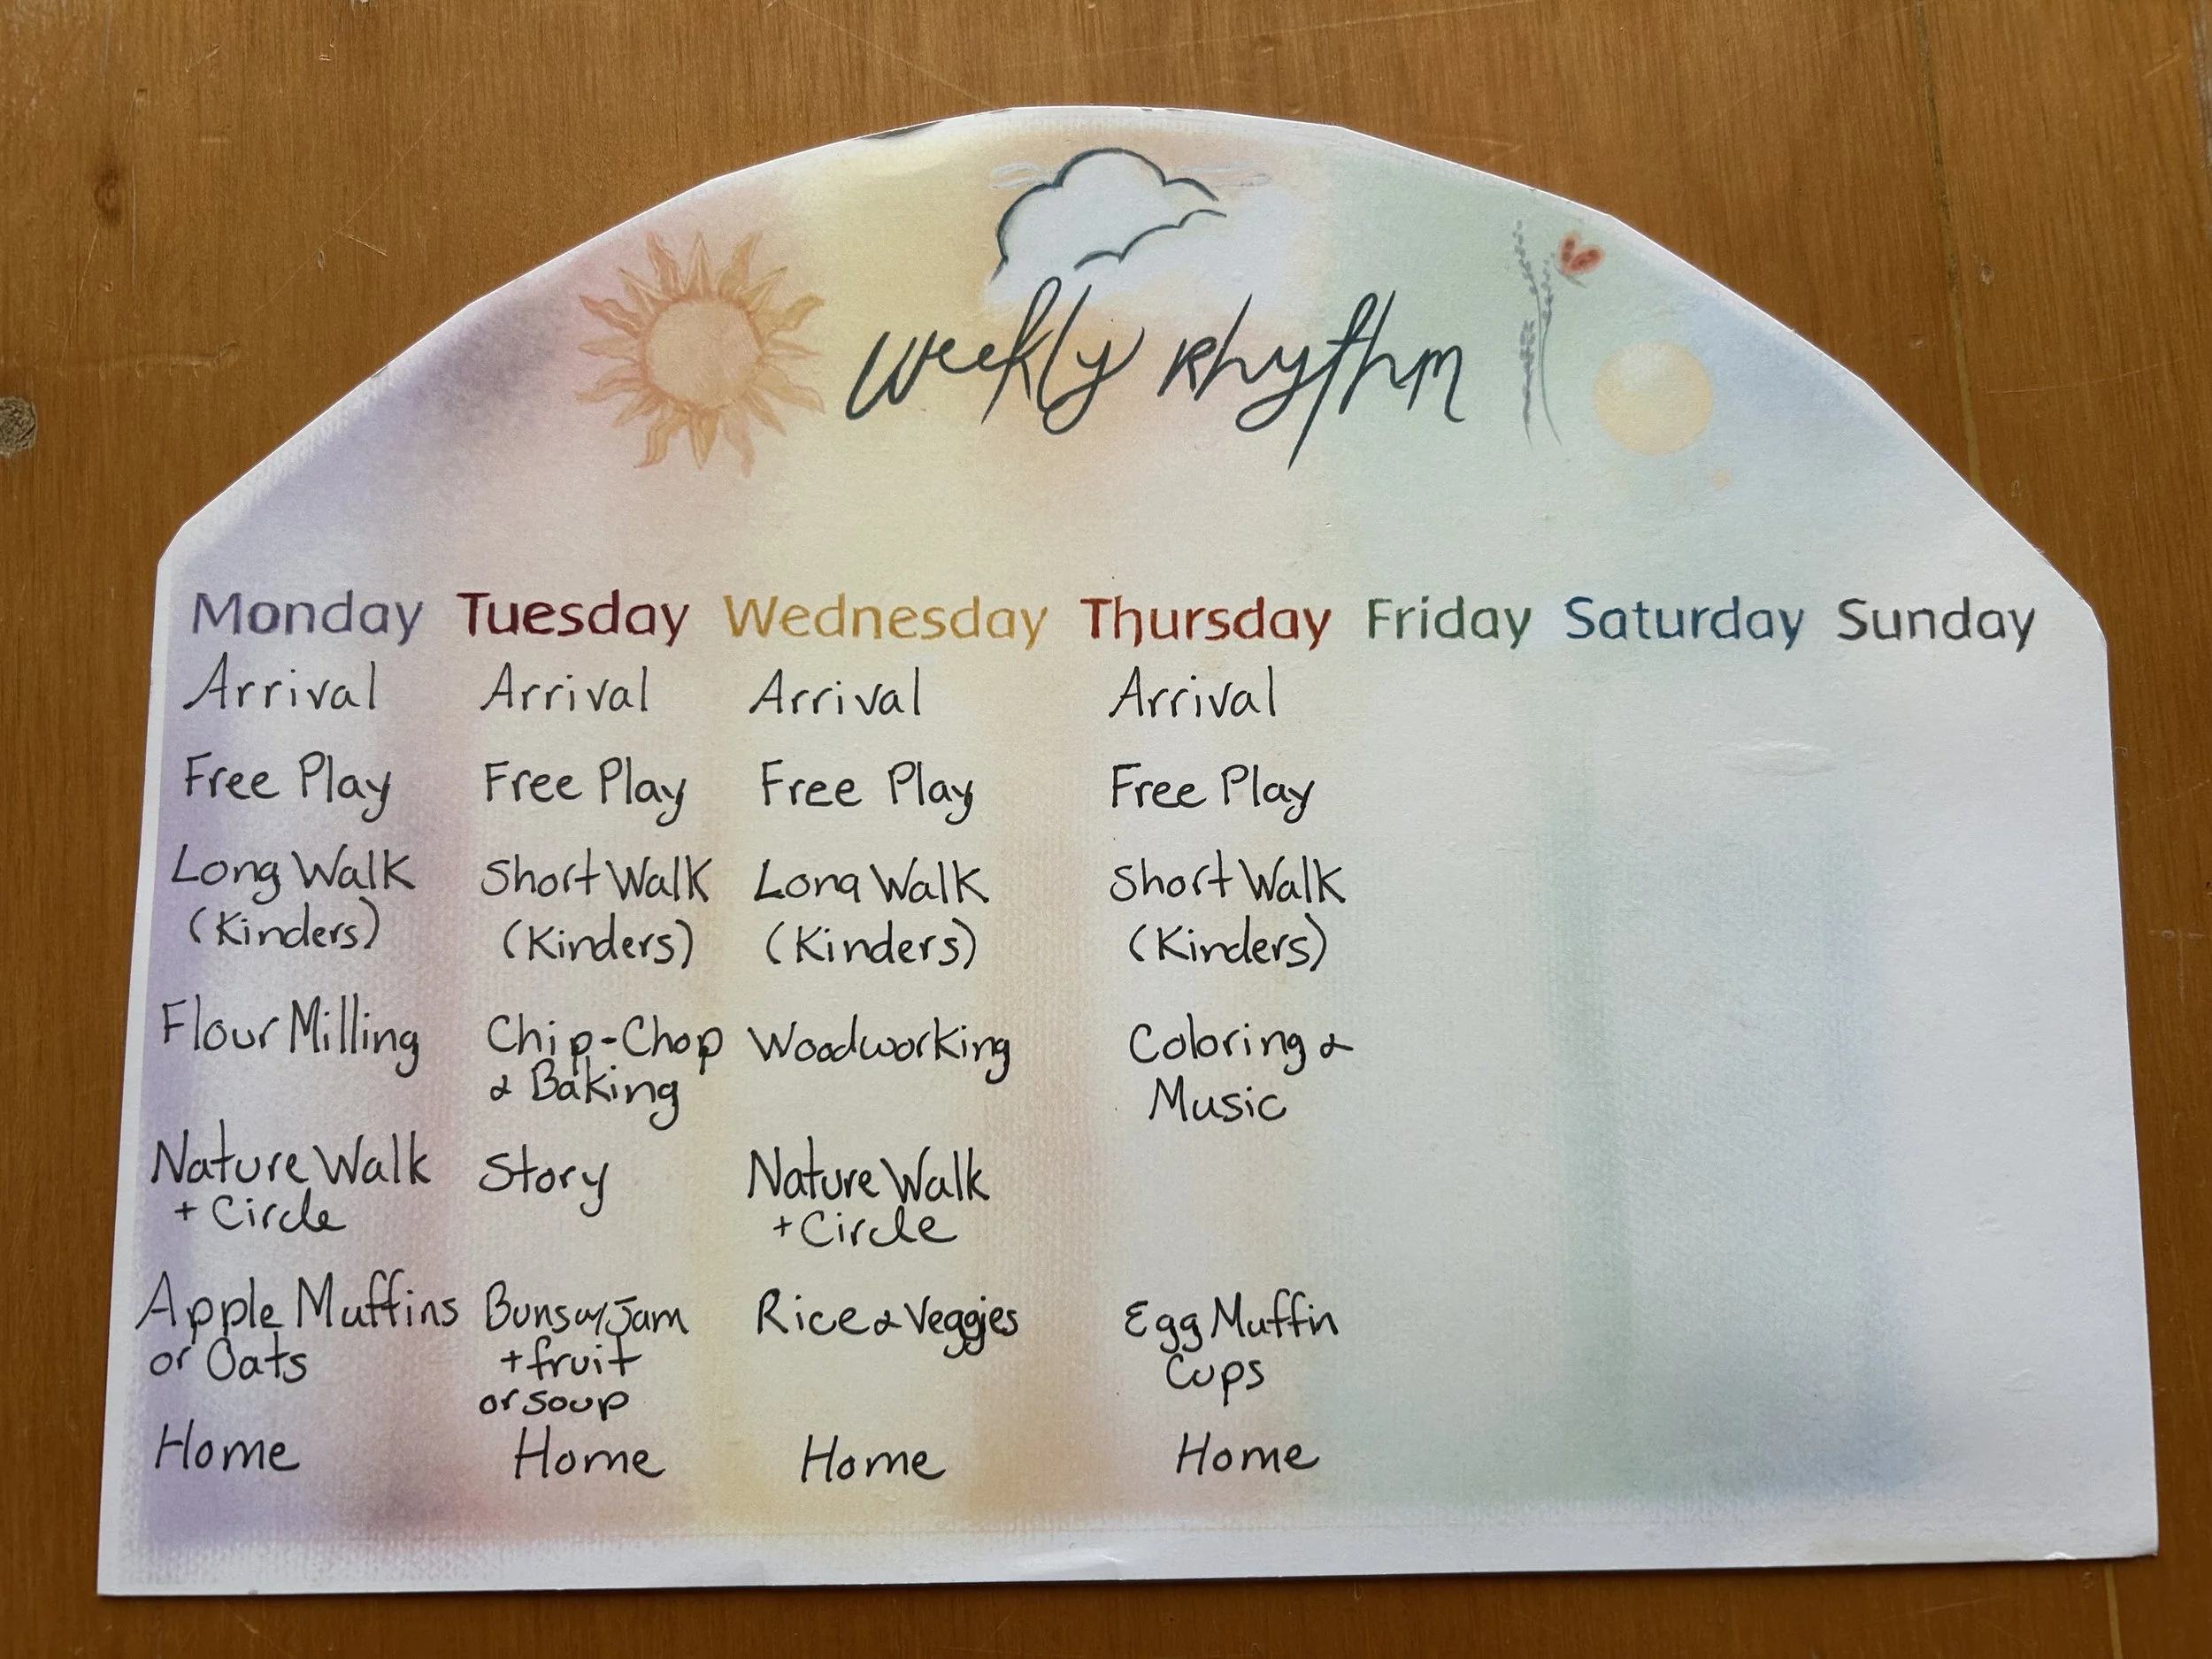 Weekly Rhythm
Monday Tuesday Wednesday Thursday Friday Saturday Sunday
Arrival Arrival Arrival Arrival
Free Play Free Play Free Play Free Play
Long Walk Short Walk Long Walk Short Walk
(Kinders) (Kinders) (Kinders) (Kinders)
Flour Milling Chip-Chop Woodworking Coloring &
& Baking Music
Nature Walk Story Nature Walk
+ Circle + Circle
Apple Muffins Buns w/ Jam Rice & Veggies Egg Muffin
or Oats + fruit Cups
or soup
Home Home Home Home